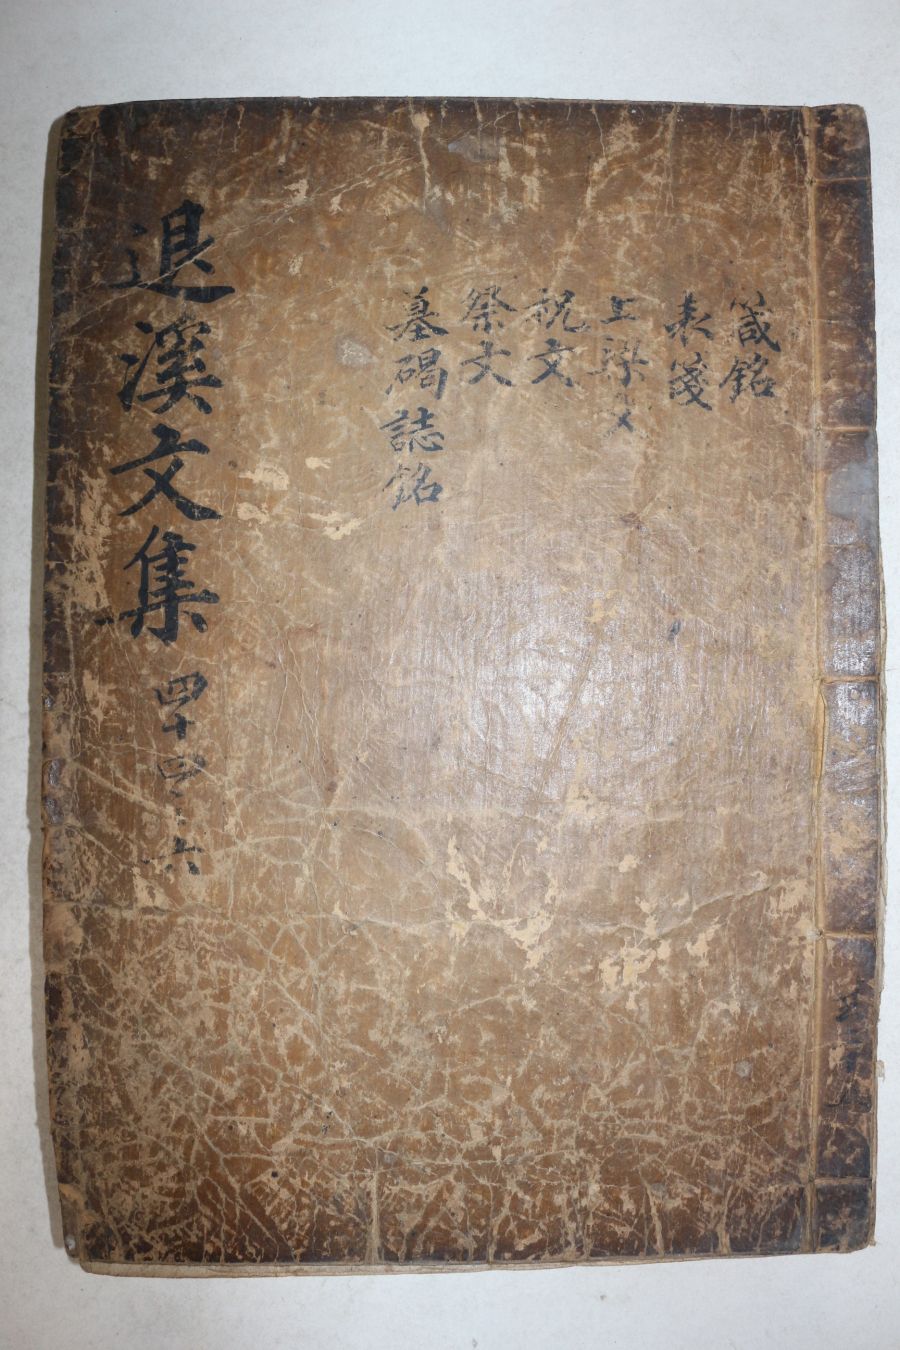 箴銘
表箋
上樑文
祝文
祭文
墓碣誌銘
退溪文集 四十四之六